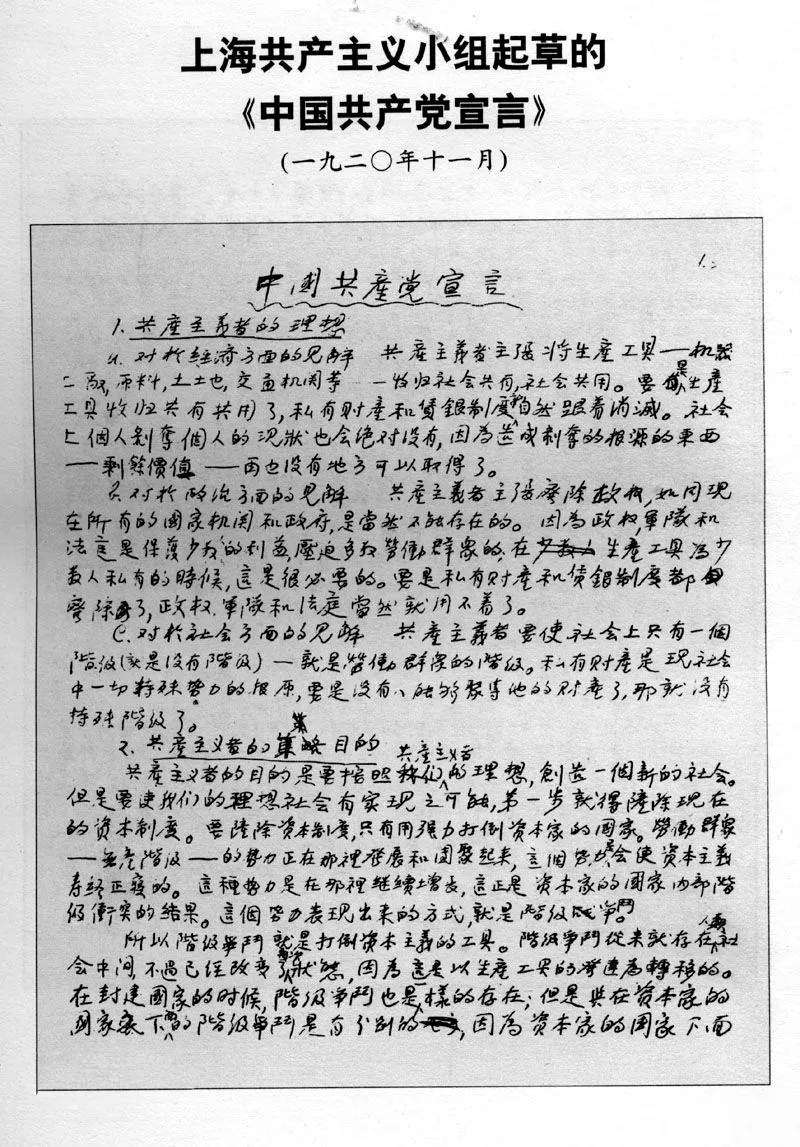 上海共产主义小组起草的
《中国共产党宣言》
(一九二〇年十一月)
1.
中國共產党宣言
1. 共產主義者的理想
a. 对於經济方面的見解 共產主義者主張将生產工具——机器
工廠,原料,土地,交通机関等——收归社会共有,社会共用。要是生產
工具收归共有共用了,私有财產和賃銀制度就自然跟着消滅。社会
上個人剝奪個人的况狀也会绝对没有,因為造成剝奪的根源的東西
——剩餘價值——再也没有地方可以取得了。
B. 对於政治方面的見解 共產主義者主張廢除政权,如同现
在所有的國家机関和政府,是當然不能存在的。因為政权,軍隊和
法庭是保護少数人的利益,壓迫多数勞働群衆的,在生產工具為少
数人私有的時候,這是很必要的。要是私有财產和賃銀制度都
廢除了,政权、軍隊和法庭當然就用不着了。
C. 对於社会方面的見解 共產主義者要使社会上只有一個
階級(就是没有階級)——就是勞働群衆的階級。私有财產是现社会
中一切特殊势力的根原,要是没有人能够聚集他的财產了,那就没有
特殊階級了。
2. 共產主義者的目的
共產主義者的目的是要按照共產主義者的理想,創造一個新的社会。
但是要使我们的理想社会有实现之可能,第一步就得鏟除现在
的资本制度。要鏟除资本制度,只有用强力打倒资本家的國家。勞働群衆
——無產階級——的势力正在那裡發展和团聚起来,這個势力会使资本主義
寿終正寝的。這種势力是在那裡继续增長,這正是资本家的國家内部階
級衝突的结果。這個势力表现出来的方式,就是階級争鬥。
所以階級争鬥就是打倒资本主義的工具。階級争鬥從来就存在人類社
会中间,不过已经改变幾次狀態,因為這是以生產工具的發達為轉移的。
在封建國家的时候,階級争鬥也是一樣的存在;但是與在资本家的
國家裏下面的階級争鬥是有分别的,因為资本家的國家下面